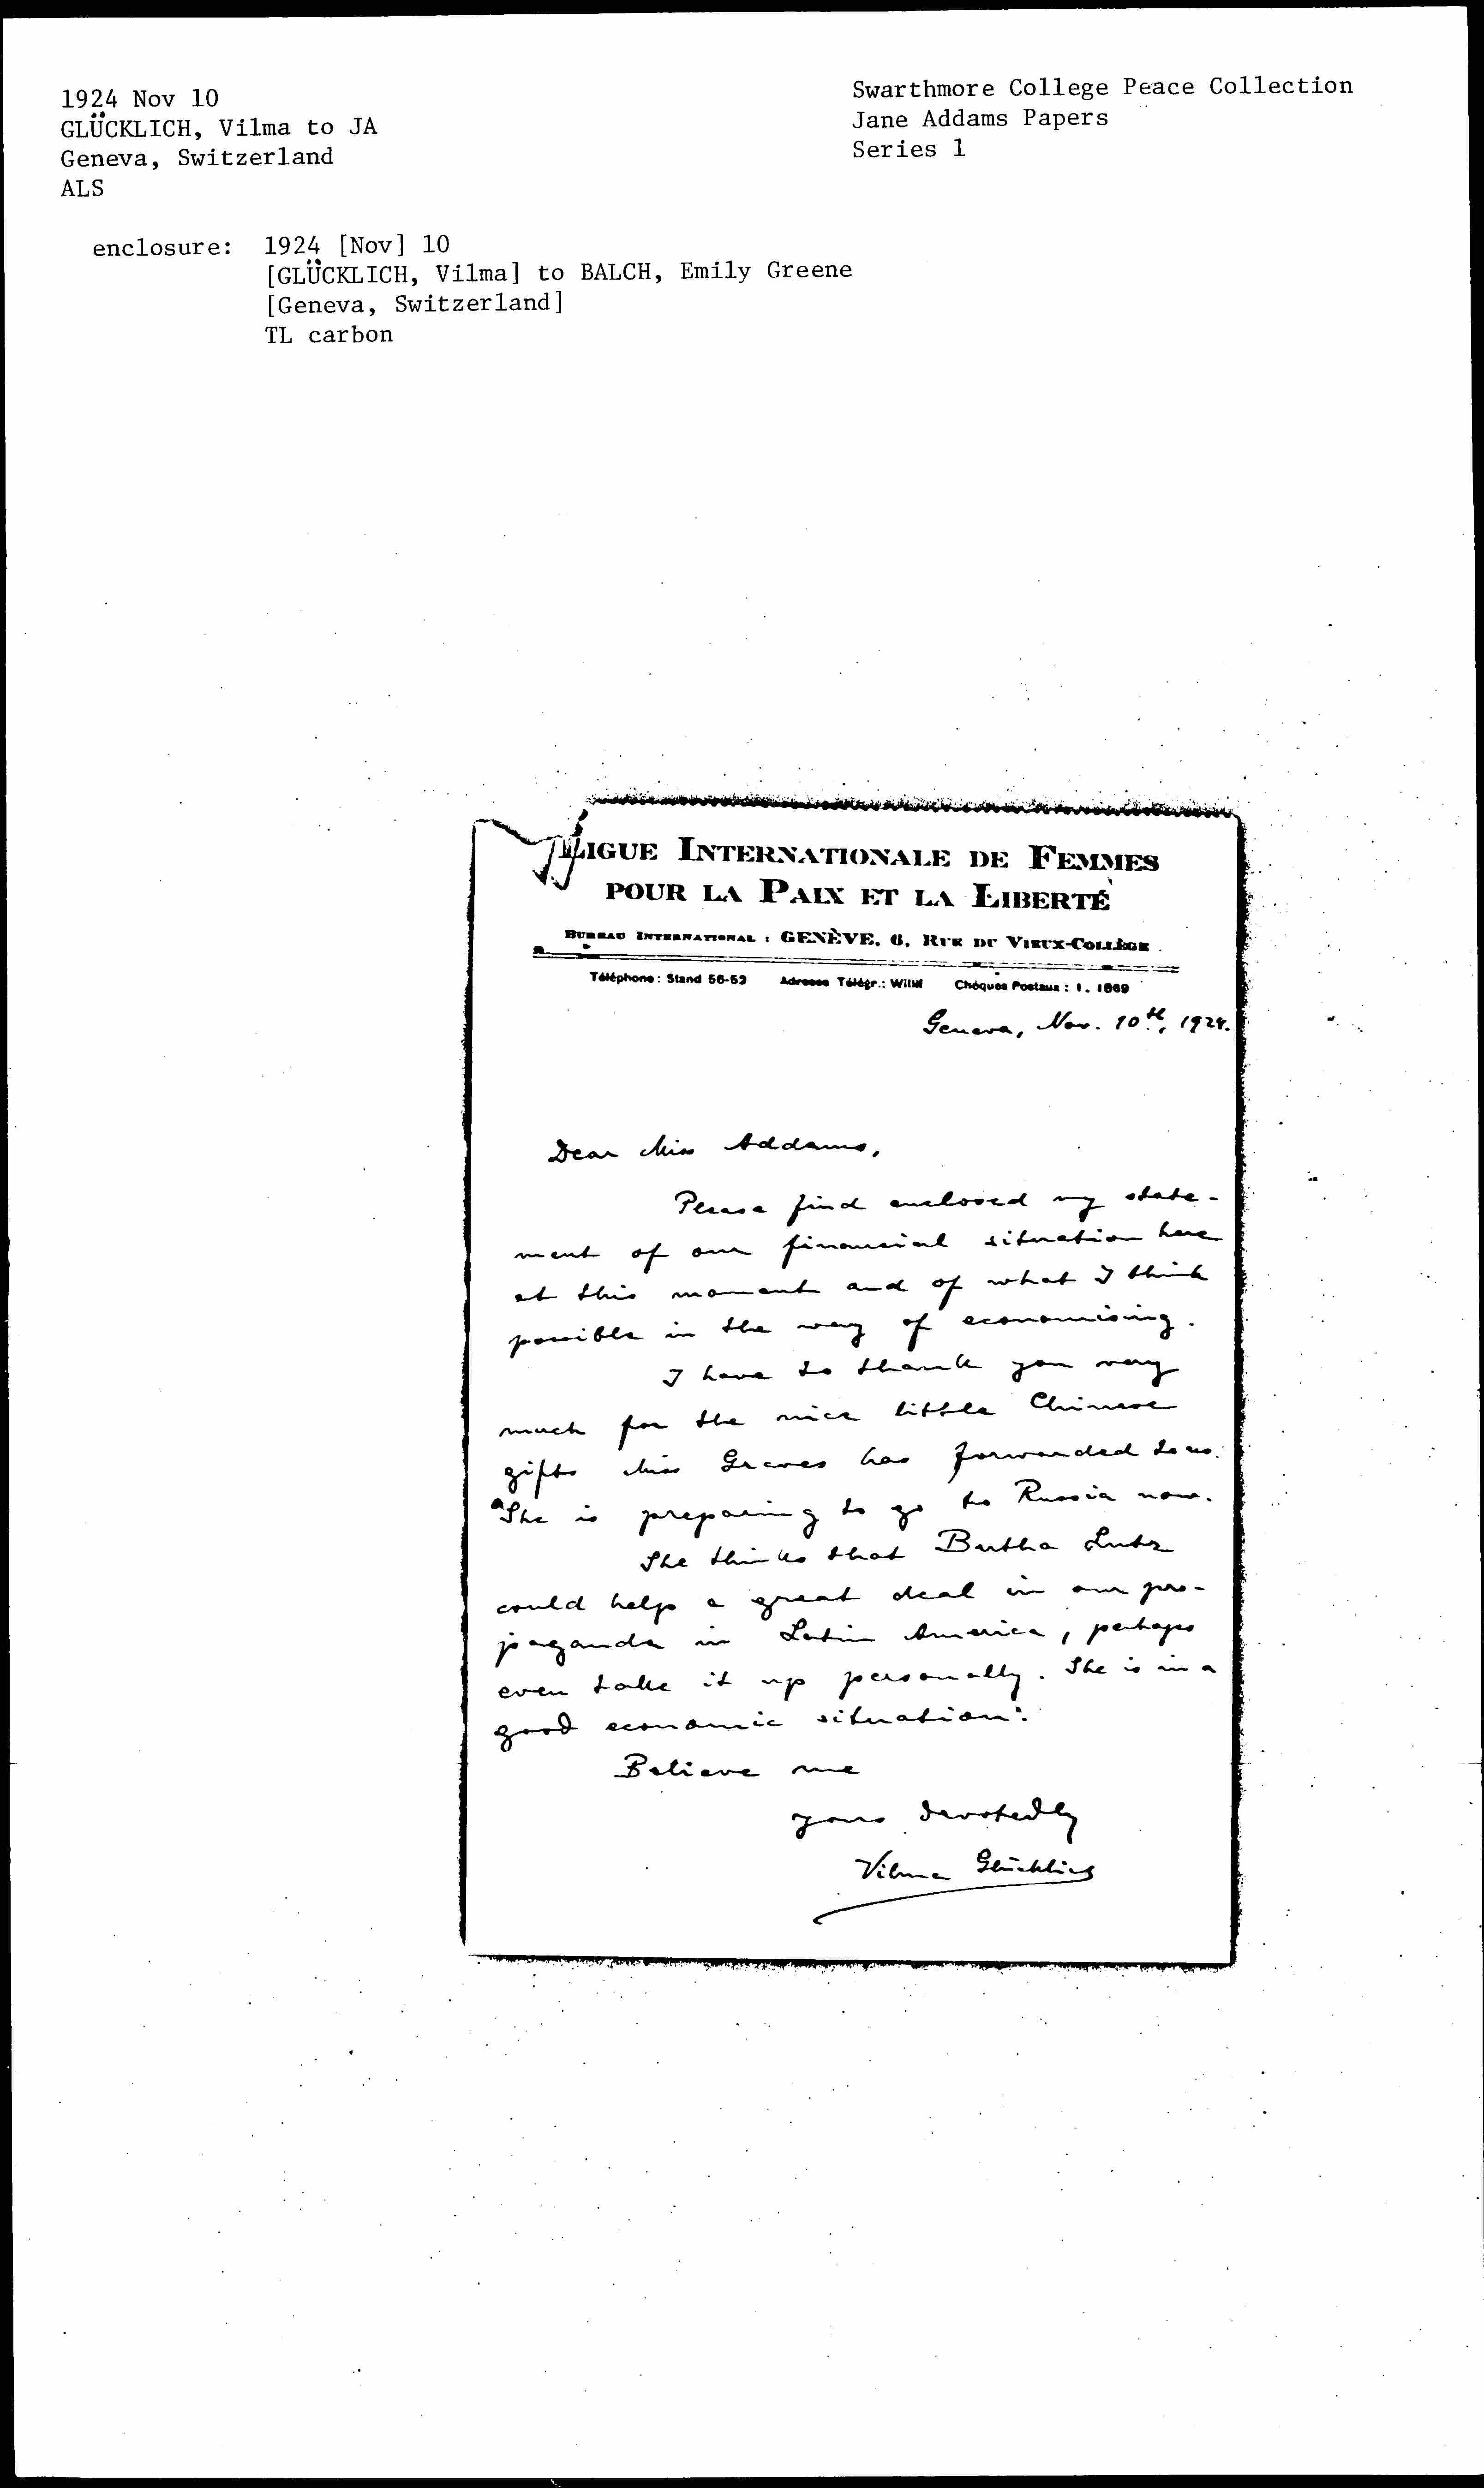 1924 Nov 10
GLÜCKLICH, Vilma to JA
Geneva, Switzerland
ALS
Swarthmore College Peace Collection
Jane Addams Papers
Series 1
enclosure: 1924 [Nov] 10
[GLÜCKLICH, Vilma] to BALCH, Emily Greene
[Geneva, Switzerland]
TL carbon
LIGUE INTERNATIONALE DE FEMMES
POUR LA PAIX ET LA LIBERTÉ
BUREAU INTERNATIONAL : GENÈVE, 6, RUE DU VIEUX-COLLÈGE
Téléphone : Stand 56-52 Adresse Télégr.: Willif Chèques Postaux : I. 1869
Geneva, Nov. 10th, 1924.
Dear Miss Addams,
Please find enclosed my state-
ment of our financial situation here
at this moment and of what I think
possible in the way of economising.
I have to thank you very
much for the nice little Chinese
gifts Miss Graves has forwarded to us.
She is preparing to go to Russia now.
She thinks that Bertha Lutz
could help a great deal in our pro-
paganda in Latin America, perhaps
even take it up personally. She is in a
good economic situation.
Believe me
yours devotedly
Vilma Glücklich